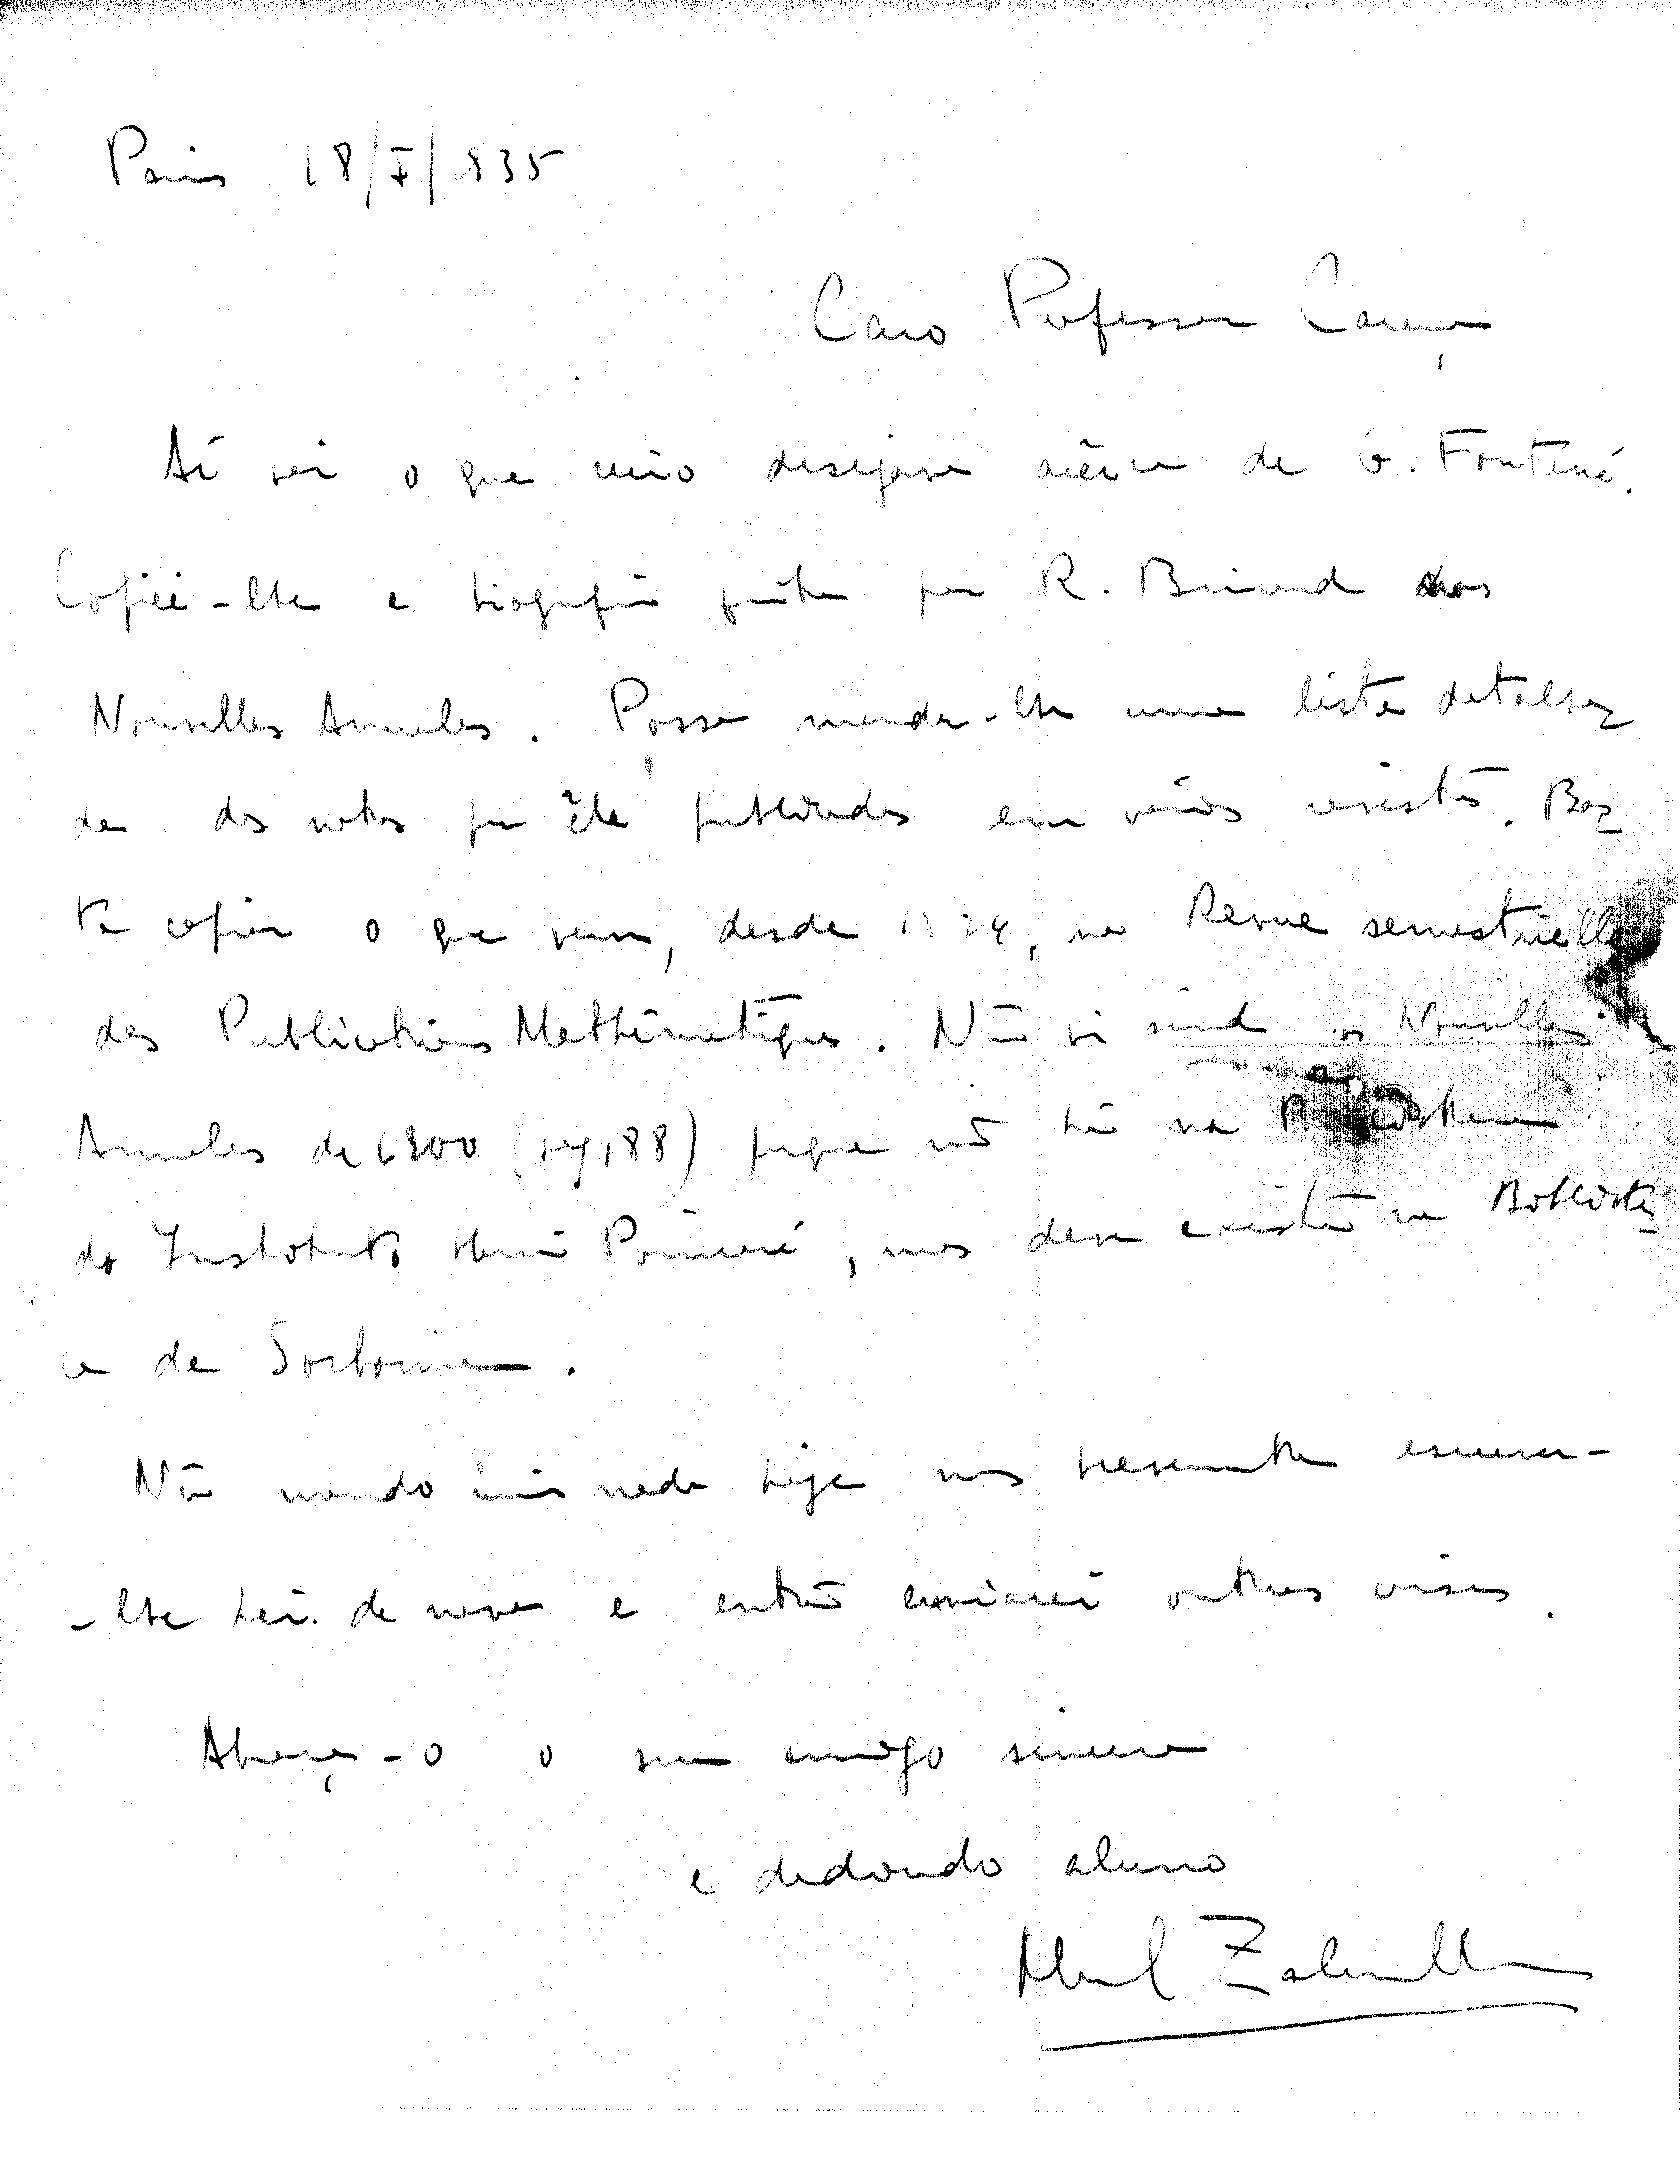 Paris 18/X/935
Caro Professor Caraça
Aí vai o que  desejava acêrca de G. Fontené.
Copiei-lhe a biografia feita por R. Bricard nas
Nouvelles Annales. Posso mandar-lhe uma lista detalha
da das notas por êle publicadas em várias revistas. Bas
ta copiar o que vem, desde , na Revue semestrielle
des Publications Mathématiques. Não vi ainda os Nouvelles
Annales de 1900 (pg 188) porque não há na Biblioteca
do Instituto Henri Poincaré, mas deve existir na Bibliote
ca da Sorbonne.
Não mando mais nada hoje mas brevemente escrever-
-lhe hei de novo e então enviarei outras coisas.
Abraça-o o seu amigo sincero
e dedicado aluno